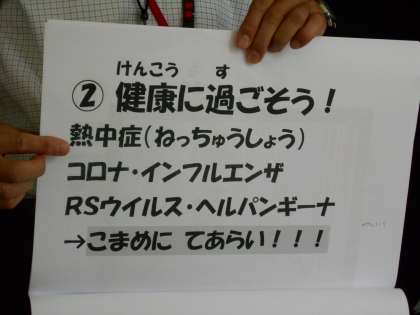 けんこう す
② 健康に過ごそう！
熱中症(ねっちゅうしょう)
コロナ・インフルエンザ
RSウイルス・ヘルパンギーナ
→こまめに てあらい！！！